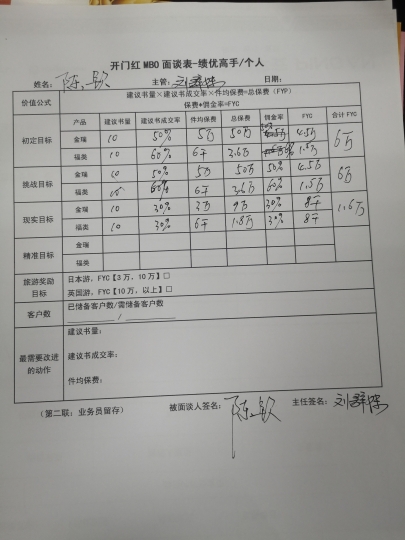 开门红 MBO 面谈表-绩优高手/个人
姓名： 主管： 日期：
价值公式 建议书量×建议书成交率×件均保费=总保费（FYP）
保费*佣金率=FYC
产品 建议书量 建议书成交率 件均保费 总保费 佣金率 FYC 合计 FYC
初定目标 金瑞 10 50% 5万 50万 4.5万 6万
福类 10 60% 6千 3.6万 1.5万
挑战目标 金瑞 10 50% 5万 50万 50% 4.5万 6万
福类 60% 6千 3.6万 60% 1.5万
现实目标 金瑞 10 30% 3万 9万 30% 8千 1.6万
福类 10 30% 6千 1.8万 30% 8千
精准目标 金瑞
福类
旅游奖励目标 日本游，FYC【3万，10万】□
英国游，FYC【10万，以上】□
客户数 已储备客户数/需储备客户数
/
最需要改进的动作 建议书量：
建议书成交率：
件均保费：
（第二联：业务员留存） 被面谈人签名： 主任签名：